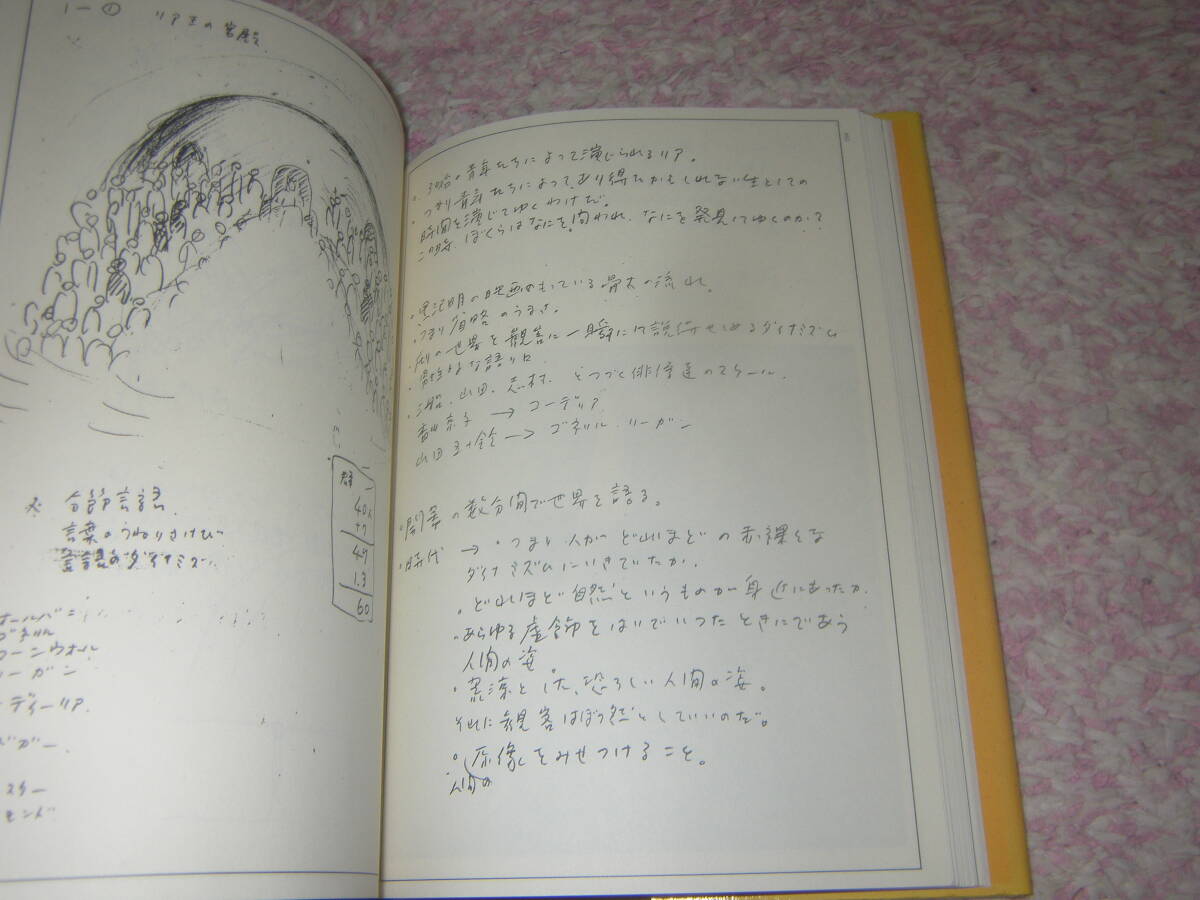 1-① リア王の宮殿
※ 分節言語
言葉のうねりさけび
言語のダイナミズム
群
40人
+7
47
13
60
オールバニ
ゴネリル
コーンウォル
リーガン
ーディーリア
ドガー
スター
モンド
・30名の青年たちによって演じられるリア。
・つまり青年たちによって、あり得たかもしれない生としての
時間を演じてゆくわけだ。
この時、ぼくらはなにを問われ、なにを発見してゆくのか?
・黒沢明の映画がもっている最大の流れ。
・つまり省略のうまさ。
の世界を観客に一瞬にして説得せしめるダイナミズム
な語り口
・三船、山田、志村、とつづく俳優達のスケール。
香川京子 → コーデリア
山田五十鈴 → ゴネリル、リーガン
・開幕の数分間で世界を語る。
・時代 → ・つまり人がどれほどの赤裸々な
ダイナミズムにいきていたか。
・どれほど自然というものが身近にあったか。
・あらゆる虚飾をはいでいったときにであう
人間の姿
・荒涼とした、恐ろしい人間の姿。
それに観客はぼう然としていいのだ。
・人間の原像をみせつけること。